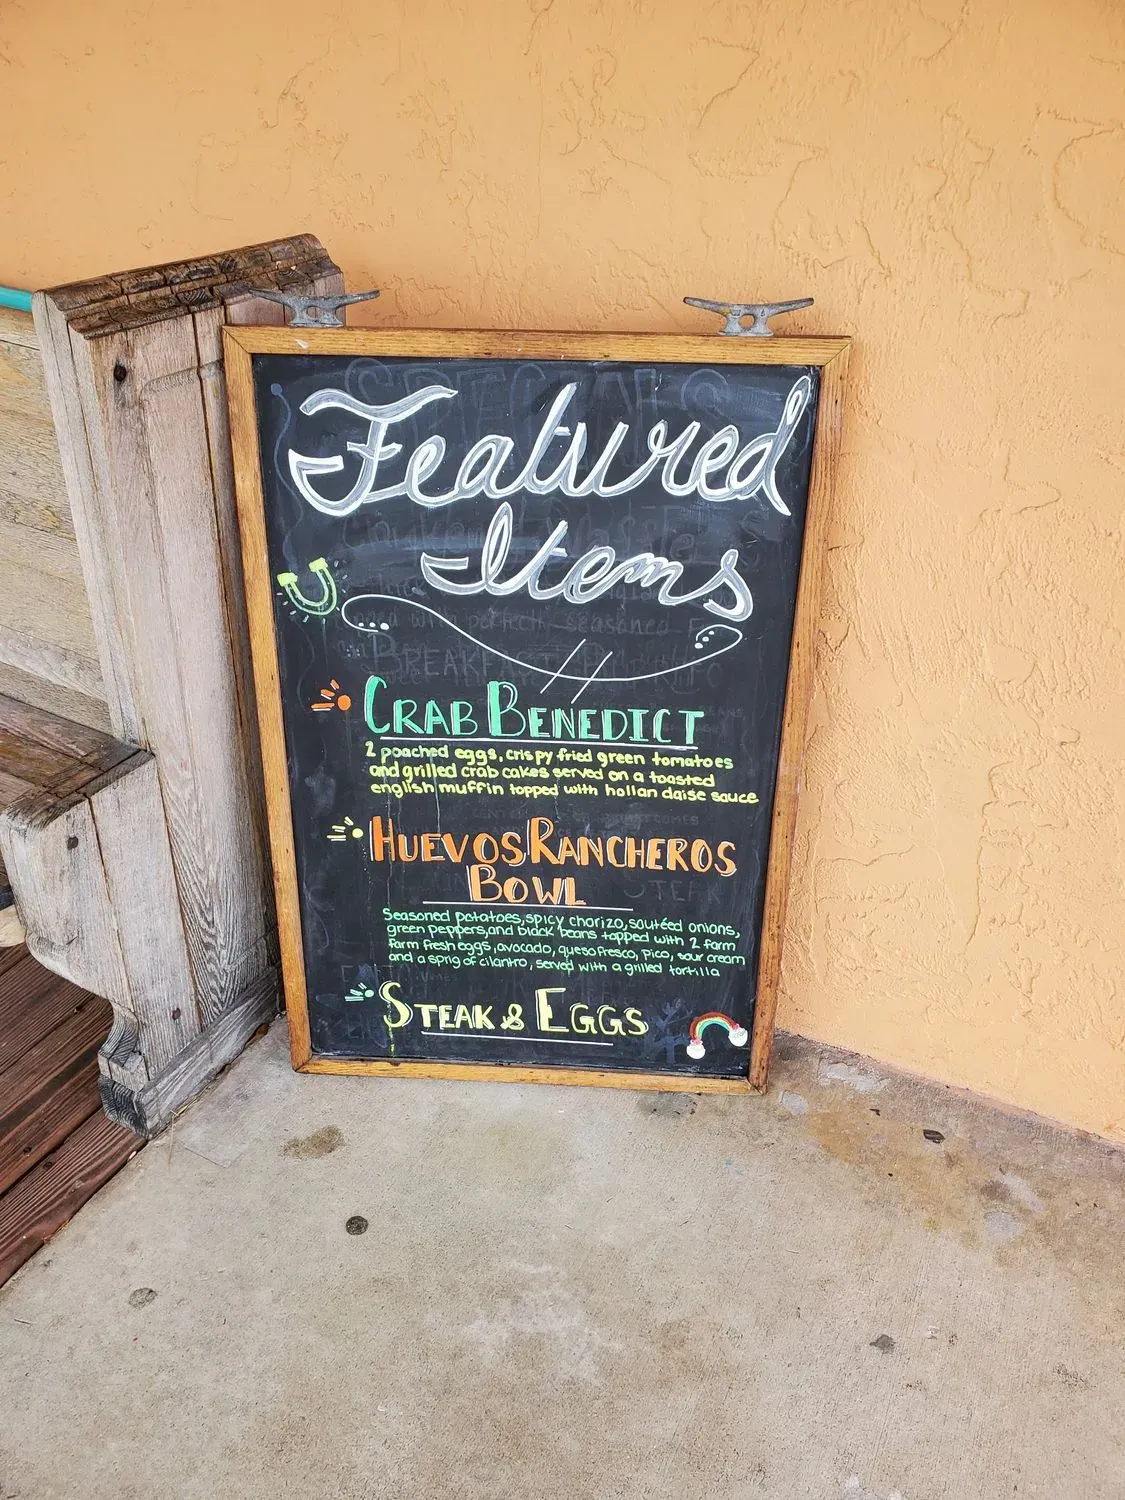 Featured
Items
CRAB BENEDICT
2 poached eggs, crispy fried green tomatoes
and grilled crab cakes served on a toasted
english muffin topped with hollan daise sauce
HUEVOS RANCHEROS
BOWL
Seasoned potatoes, spicy chorizo, sautéed onions,
green peppers, and black beans topped with 2 farm
farm fresh eggs, avocado, queso fresco, pico, sour cream
and a sprig of cilantro, served with a grilled tortilla
STEAK & EGGS